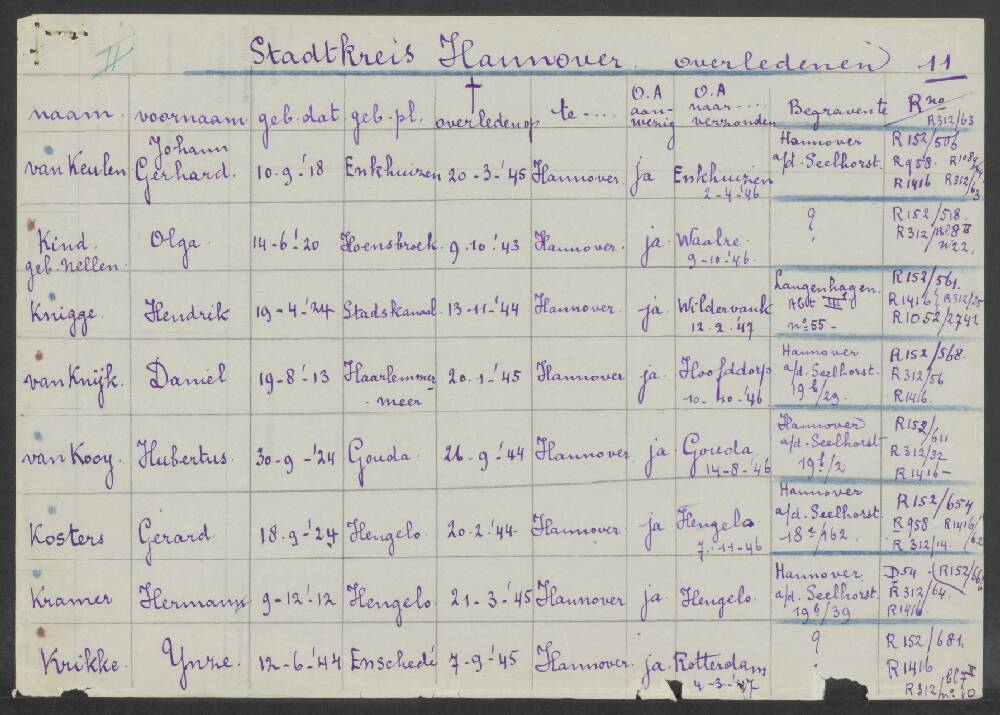 II Stadtkreis Hannover. overledenen 11
naam. voornaam geb. dat. geb. pl. † overleden op te .... O.A aan-wezig O.A naar .... verzonden Begraven te R no R312/63
van Keulen Johann Gerhard. 10-9-'18 Enkhuizen 20-3-'45 Hannover. ja Enkhuizen 2-4-'46 Hannover a/d. Seelhorst. R152/506 R958. R1416 R312/63
Kind. geb. Nellen. Olga 14-6-'20 Hoensbroek 9-10-'43 Hannover. ja. Waalre. 9-10-'46. ? R152/518. R312/Bl8 II no 22.
Knigge. Hendrik 19-4-'24 Stadskanaal 13-11-'44 Hannover ja. Wildervank 12.2.'47 Langenhagen. Abt III no 55- R152/561. R1416 R312/25 R1052/2741
van Knijk. Daniël 19-8-'13 Haarlemmer-meer 20-1-'45 Hannover ja. Hoofddorp 10-10-'46 Hannover a/d. Seelhorst. 19b/29. R152/568. R312/56 R1416.
van Kooy. Hubertus. 30-9-'24 Gouda. 26-9-'44 Hannover. ja. Gouda. 14-8-'46 Hannover a/d. Seelhorst 19f/2 R152/611 R312/32 R1416-
Kosters Gerard. 18-9-'24 Hengelo. 20-2-'44. Hannover. ja Hengelo 7-11-46 Hannover a/d. Seelhorst. 18a/162. R152/654 R958 R1416/62 R312/14.
Kramer Hermanus 9-12-'12 Hengelo. 21-3-'45 Hannover ja. Hengelo. Hannover. a/d. Seelhorst. 19b/39 D54. R152/66 R312/64. R1416.
Krikke. Ynze. 12-6-'44 Enschedé 7-9-'45 Hannover ja. Rotterdam 4-3-'47 ? R152/681. R1416 R312/bl 7 II no 10